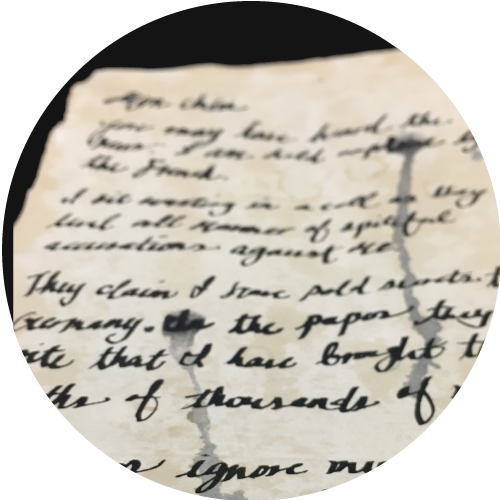 Mon cher
you may have heard the
news. I am held captive by
the French
I sit writing in a cell as they
hurl all manner of spiteful
accusations against me
They claim I have sold secrets t
Germany. In the papers they
ite that I have brought t
ths of thousands of
ignore my